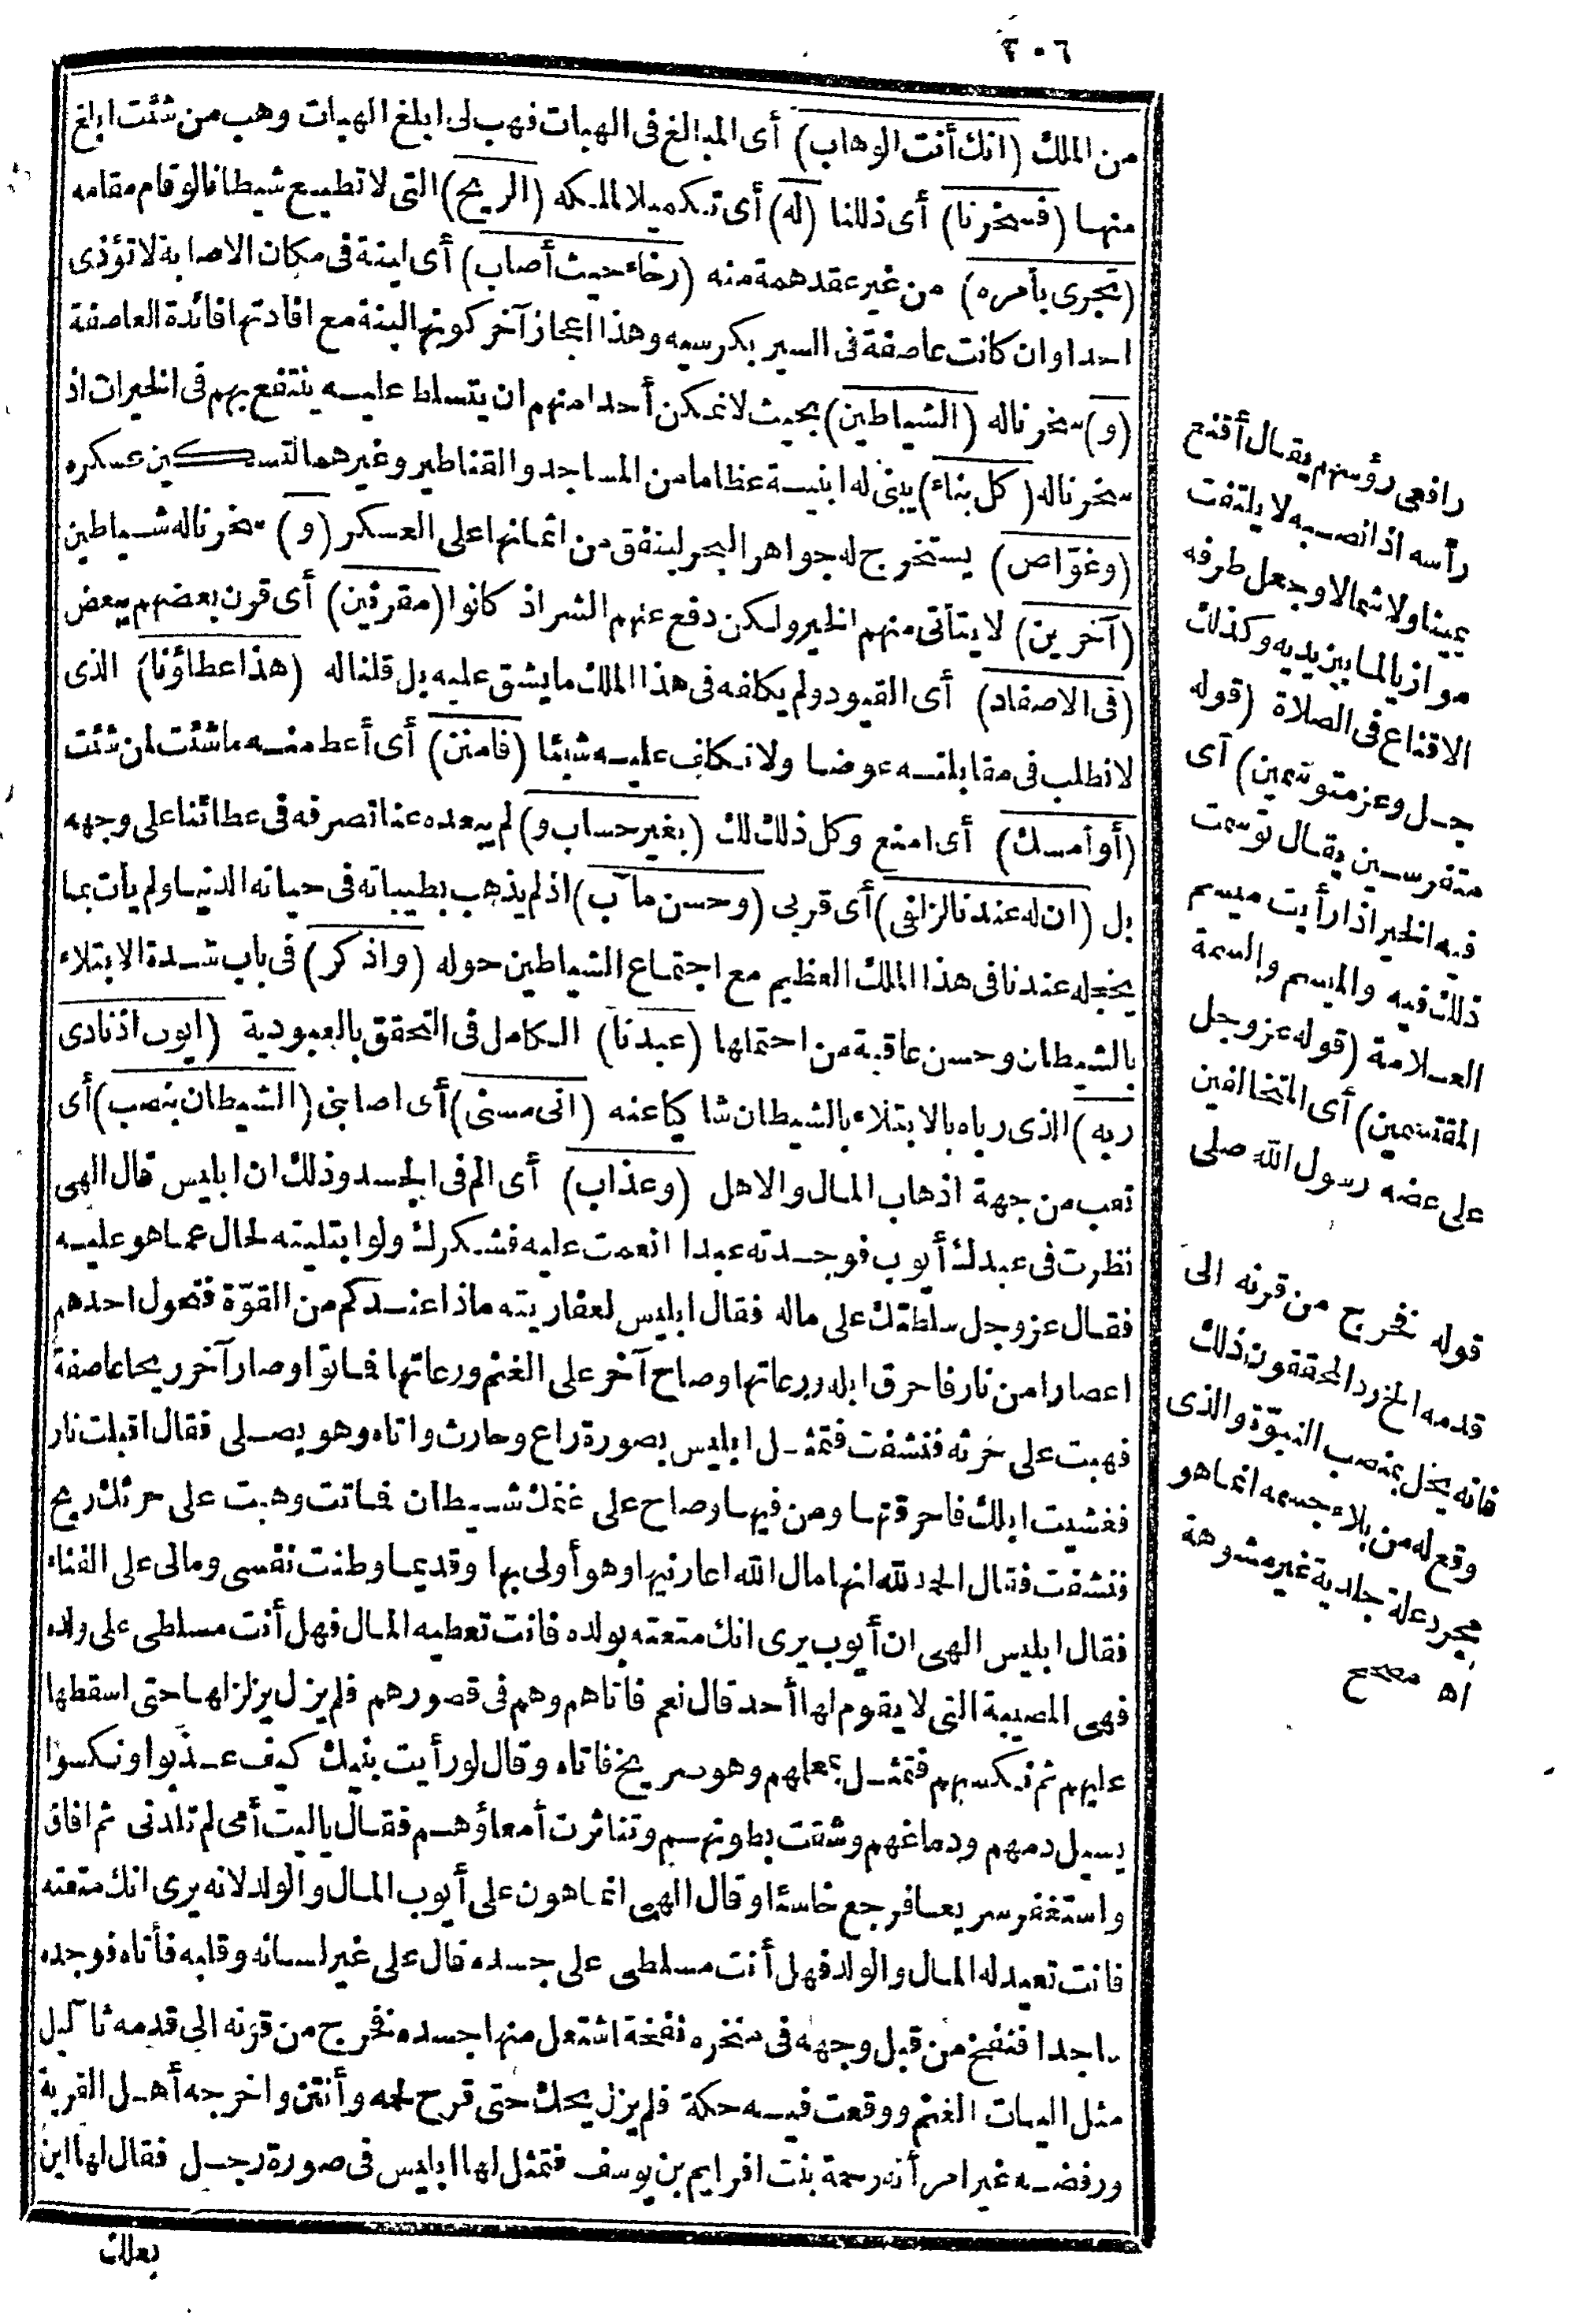 ٢٠٦
من الملك (انك أنت الوهاب) أى المبالغ فى الهبات فهب لى ابلغ الهبات وهب من شئت ابلغ
منها (فسخرنا) أى ذللنا (له) أى تكميلا لملكه (الريح) التى لا تطيع شيطانا لو قام مقامه
(تجرى بأمره) من غير عقد همة منه (رخاء حيث أصاب) أى لينة فى مكان الاصابة لا تؤذى
احدا وان كانت عاصفة فى السير بكرسيه وهذا اعجاز آخر كونها لينة مع افادتها فائدة العاصفة
(و) سخرنا له (الشياطين) بحيث لا نمكن أحدا منهم ان يتسلط عليه ينتفع بهم فى الخيرات اذ
سخرنا له (كل بناء) يبنى له ابنية عظاما من المساجد والقناطير وغيرهما لتسكين عسكره
(وغوّاص) يستخرج له جواهر البحر لينفق من اثمانها على العسكر (و) سخرنا له شياطين
(آخرين) لا يتأتى منهم الخير ولكن دفع عنهم الشر اذ كانوا (مقرنين) أى قرن بعضهم ببعض
(فى الاصفاد) أى القيود ولم يكلفه فى هذا الملك ما يشق عليه بل قلنا له (هذا عطاؤنا) الذى
لا نطلب فى مقابلته عوضا ولا نكلف عليه شيئا (فامنن) أى أعط منه ما شئت لمن شئت
(أو أمسك) أى امنع وكل ذلك لك (بغير حساب و) لم يبعده عنا تصرفه فى عطائنا على وجهه
بل (ان له عندنا لزلفى) أى قربى (وحسن مآب) اذ لم يذهب بطيباته فى حياته الدنيا ولم يأت بما
يخجله عندنا فى هذا الملك العظيم مع اجتماع الشياطين حوله (واذكر) فى باب شدة الابتلاء
بالشيطان وحسن عاقبة من احتملها (عبدنا) الكامل فى التحقق بالعبودية (ايوب اذ نادى
ربه) الذى رباه بالابتلاء بالشيطان شاكيا عنه (انى مسنى) أى اصابنى (الشيطان بنصب) أى
تعب من جهة اذهاب المال والاهل (وعذاب) أى الم فى الجسد وذلك ان ابليس قال الهى
نظرت فى عبدك أيوب فوجدته عبدا انعمت عليه فشكرك ولو ابتليته لحال عما هو عليه
فقال عز وجل سلطتك على ماله فقال ابليس لعفاريته ماذا عندكم من القوّة فتحول احدهم
اعصارا من نار فاحرق ابله ورعاتها وصاح آخر على الغنم ورعاتها فماتوا وصار آخر ريحا عاصفة
فهبت على حرثه فنشفت فتمثل ابليس بصورة راع وحارث واتاه وهو يصلى فقال اقبلت نار
فغشيت ابلك فاحرقتها ومن فيها وصاح على غنمك شيطان فماتت وهبت على حرثك ريح
فنشفت فقال الحمد لله انها مال الله اعارنيها وهو أولى بها وقديما وطنت نفسى ومالى على الفناء
فقال ابليس الهى ان أيوب يرى انك متعته بولده فانت تعطيه المال فهل أنت مسلطى على ولده
فهى المصيبة التى لا يقوم لها أحد قال نعم فاتاهم وهم فى قصورهم فلم يزل يزلزلها حتى اسقطها
عليهم ثم نكسهم فتمثل بمعلهم وهو جريح فاتاه وقال لو رأيت بنيك كيف عذبوا ونكسوا
يسيل دمهم ودماغهم وشقت بطونهم وتناثرت أمعاؤهم فقال ياليت أمى لم تلدنى ثم افاق
واستغفر سريعا فرجع خاسئا وقال الهى انما هون على أيوب المال والولد لانه يرى انك متعته
فانت تعيد له المال والولد فهل أنت مسلطى على جسده قال على غير لسانه وقلبه فأتاه فوجده
ساجدا فنفخ من قبل وجهه فى منخره نفخة اشتعل منها جسده فخرج من قرنه الى قدمه ثآليل
مثل اليات الغنم ووقعت فيه حكة فلم يزل يحك حتى قرح لحمه وأنتن واخرجه أهل القرية
ورفضه غير امرأته رحمة بنت افرايم بن يوسف فتمثل لها ابليس فى صورة رجل فقال لها اين
بعلك
رافعى رؤسهم يقال أقنع
رأسه اذا نصبه لا يلتفت
يمينا ولا شمالا وجعل طرفه
موازيا لما بين يديه وكذلك
الاقناع فى الصلاة (قوله
جل وعز متوسمين) أى
متفرسين يقال توسمت
فيه الخير اذا رأيت ميسم
ذلك فيه والميسم والسمة
العلامة (قوله عز وجل
المقتسمين) أى المتخالفين
على عضه رسول الله صلى
قوله فخرج من قرنه الى
قدمه الخ رد المحققون ذلك
فانه يخل بمنصب النبوّة والذى
وقع له من بلاء جسمه انما هو
مجرد علة جلدية غير مشوهة
اه مصحح